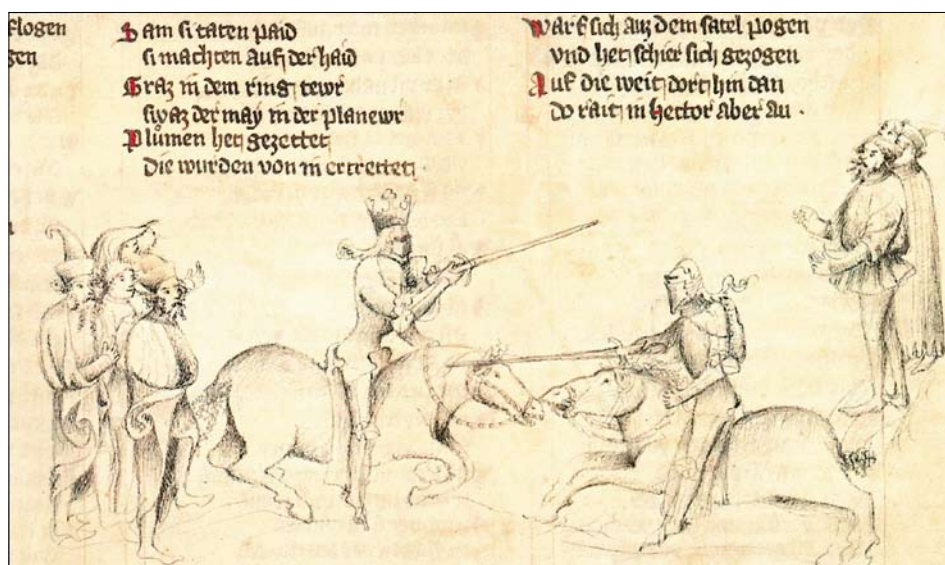 flogen
gen
Sam si taten paid
si machten auf der haid
Graz in dem ring tewr
swaz der may in der planewr
Plůmen het gezettet
Die wurden von in ertrettet .
Warf sich auz dem satel pogen
vnd het schier sich gezogen
Auf die weit dort hin dan
do rait in hector aber an .